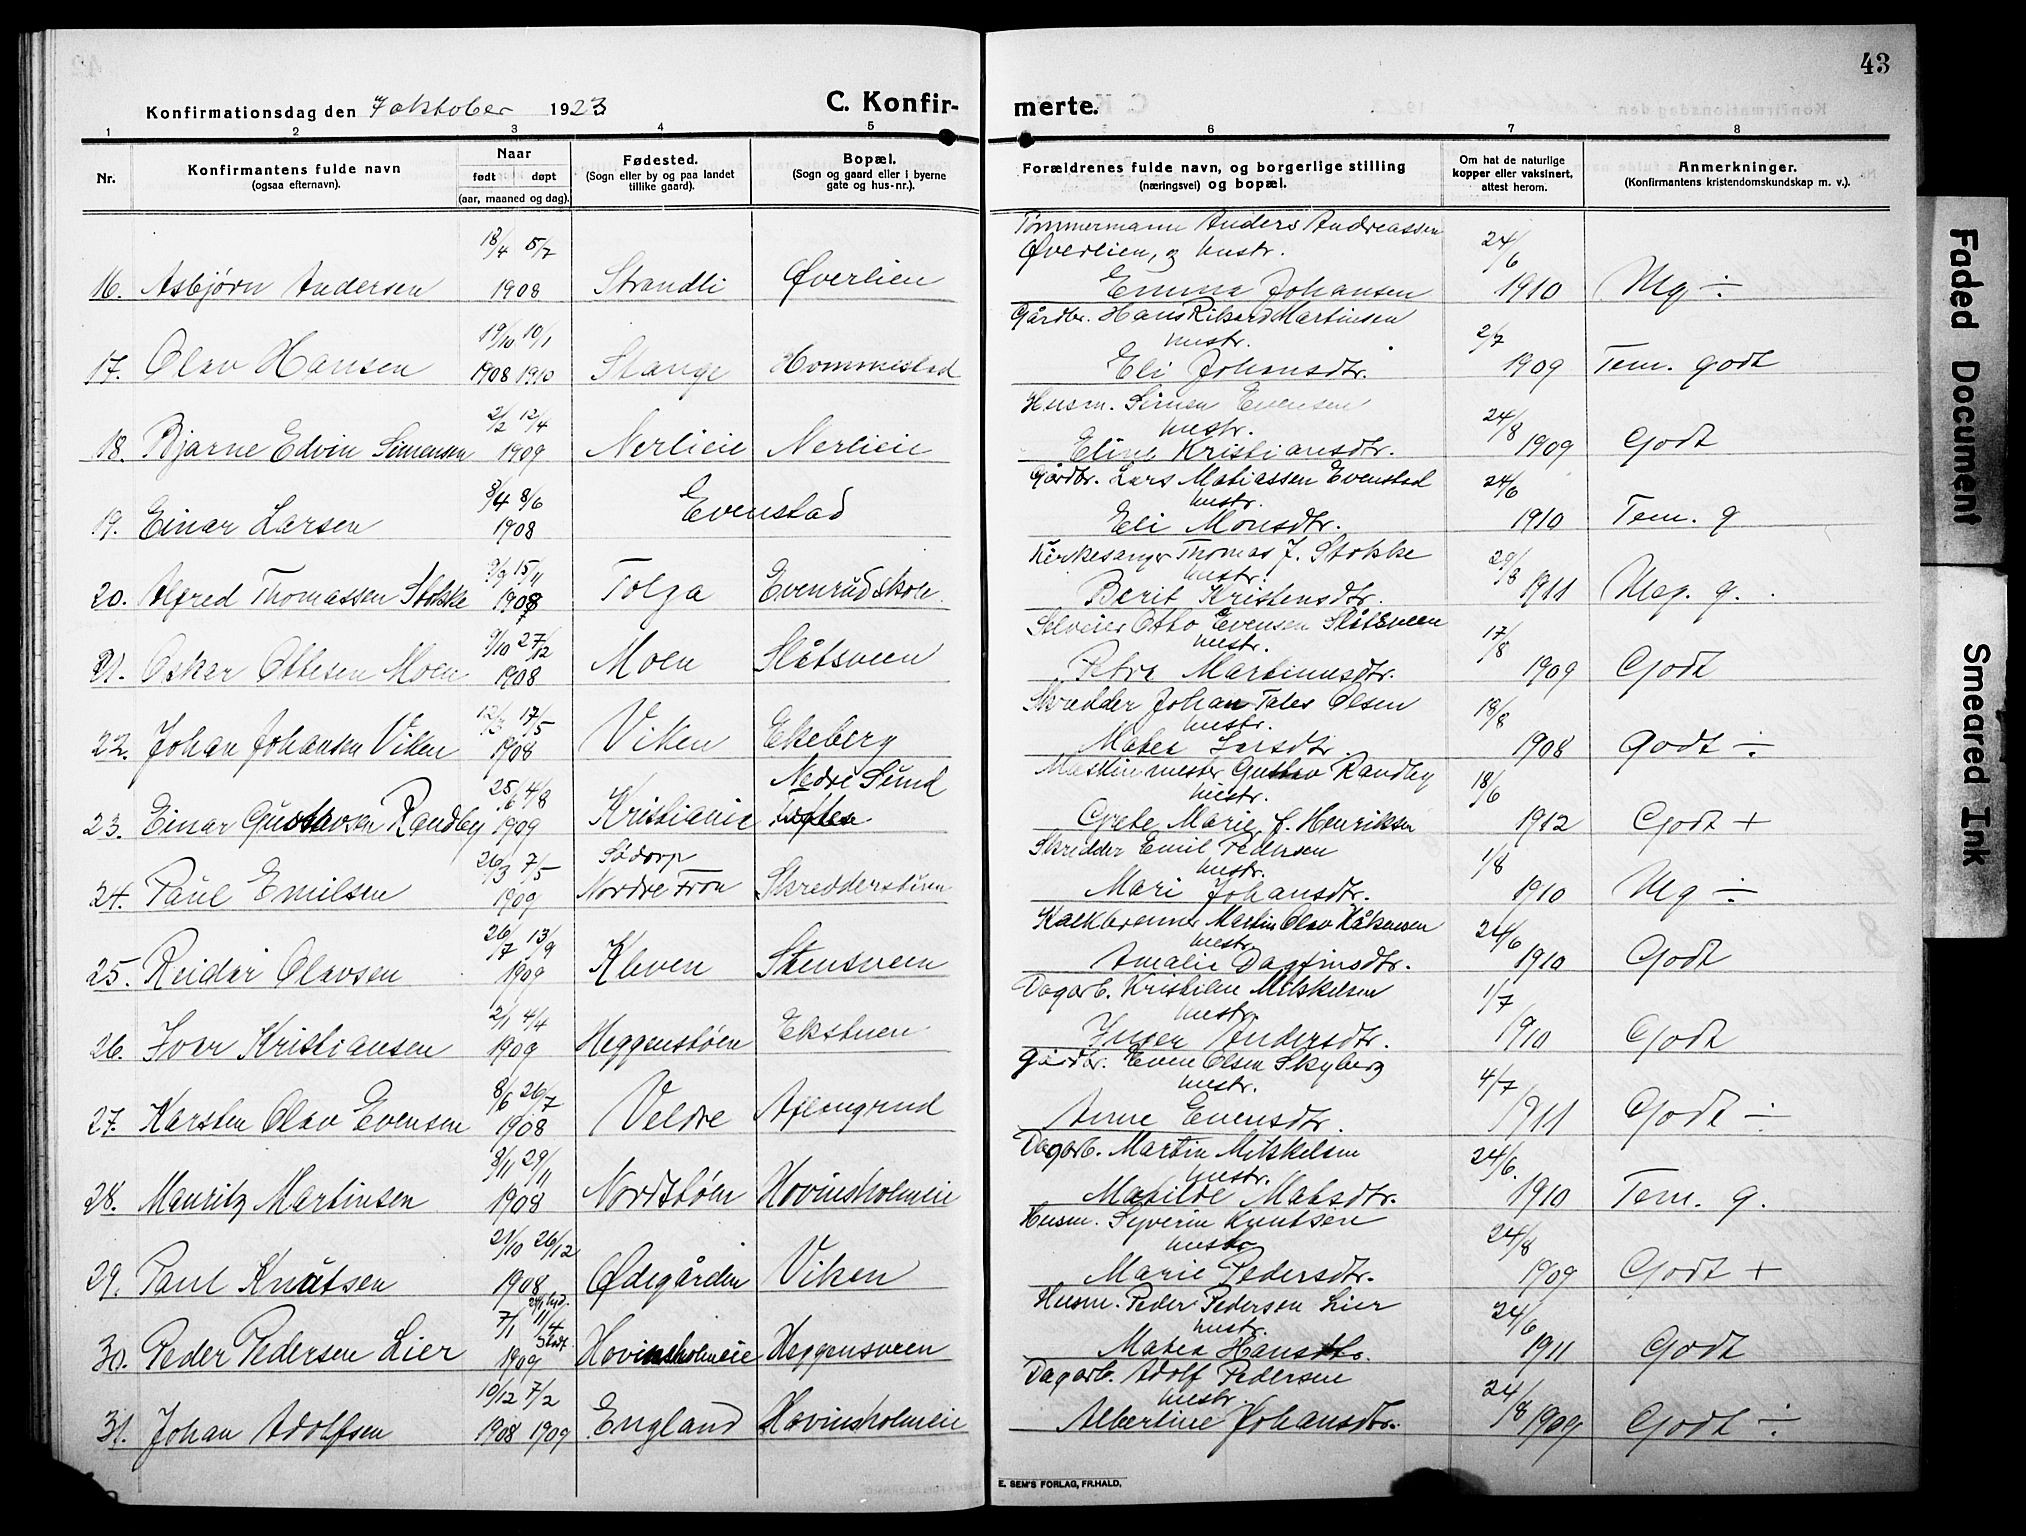 43
Konfirmationsdag den 7 oktober 1923
C. Konfir-
merte.
1 2 3 4 5 6 7 8
Nr.
Konfirmantens fulde navn
(ogsaa efternavn).
Naar
født døpt
(aar, maaned og dag).
Fødested.
(Sogn eller by og paa landet
tillike gaard).
Bopæl.
(Sogn og gaard eller i byerne
gate og hus-nr.).
Forældrenes fulde navn, og borgerlige stilling
(næringsvei) og bopæl.
Om hat de naturlige
kopper eller vaksinert,
attest herom.
Anmerkninger.
(Konfirmantens kristendomskundskap m. v.).
18/4 5/7
16. Asbjørn Andersen 1908 Strandli Øverlien
Tømmermann Anders Andreassen
Øverlien, og hustr. 24/6
Emma Johansen 1910 Mg ÷
19/10 10/1
17. Olav Hansen 1908 1910 Stange Hommestad
Gårdbr. Hans Rikard Martinsen
hustr. 2/7
Eli Johansdtr. 1909 Tem. godt
2/2 12/4
18. Bjarne Edvin Simensen 1909 Nerlieie Nerlieie
Husm. Simen Evensen
hustr. 24/8
Eline Kristiansdtr. 1909 Godt
3/4 8/6
19. Einar Larsen 1908 Evenstad
Gårdbr. Lars Matiassen Evenstad
hustr. 24/6
Eli Monsdtr. 1910 Tem. g
9/9 15/11
20. Alfred Thomassen Stokke 1908 Tolga Evenrud skole
Kirkesanger Thomas J. Stokke
hustr. 29/3
Berit Kristensdtr. 1911 Meg. g.
9/10 27/12
21. Oskar Ottesen Moen 1908 Moen Slåtsveen
Selveier Otto Evensen Slåtsveen
hustr. 17/8
Petra Martinusdtr. 1909 Godt
12/3 17/5
22. Johan Johansen Viken 1908 Viken Ekeberg
Skredder Johan Tales Olsen
hustr. 18/8
Matea Larsdtr. 1908 Godt ÷
25/6 4/8 Nedre Sund
23. Einar Gustavsen Randby 1909 Kristiania Toften
Maskinmester Gustav Randby
hustr. 18/6
Grete Marie f. Henriksen 1912 Godt +
26/3 7/5 Sødorp
24. Paul Emilsen 1909 Nordre Fron Skredderstuen
Skredder Emil Pedersen
hustr. 1/8
Mari Johansdtr. 1910 Mg ÷
26/7 13/9
25. Reidar Olavsen 1909 Kleven Stensveen
Kalkbrenner Martin Olav Håkensen
hustr. 24/6
Amalie Dagfinsdtr. 1910 Godt
2/1 4/4
26. Iver Kristiansen 1909 Heggenstøen Ekstuen
Dagarb. Kristian Mikkelsen
hustr. 1/7
Inger Andersdtr. 1910 Godt
8/6 26/7
27. Karsten Olav Evensen 1908 Veldre Aflangrud
gårdbr. Even Olsen Skyberg
hustr. 4/7
Anne Evensdtr. 1911 Godt ÷
8/11 29/11
28. Mauritz Martinsen 1908 Nordstøen Hovinsholmeie
Dagarb. Martin Mikkelsen
hustr. 24/6
Matilde Matsdtr. 1910 Tem. g.
21/10 26/12
29. Paul Knutsen 1908 Ødegården Viken
Husm. Syverin Knutsen
hustr. 24/8
Marie Pedersdtr. 1909 Godt +
7/1 11/4
30. Peder Pedersen Lier 1909 Hovinsholmeie Heggensveen
Husm. Peder Pedersen Lier
hustr. 24/6
Matea Hansdtr. 1911 Godt
10/12 7/2
31. Johan Adolfsen 1908 1909 England Hovinsholmeie
Dagarb. Adolf Pedersen
hustr. 24/8
Albertine Johansdtr. 1909 Godt ÷
E. SEM'S FORLAG, FR.HALD.
Faded Document
Smeared Ink